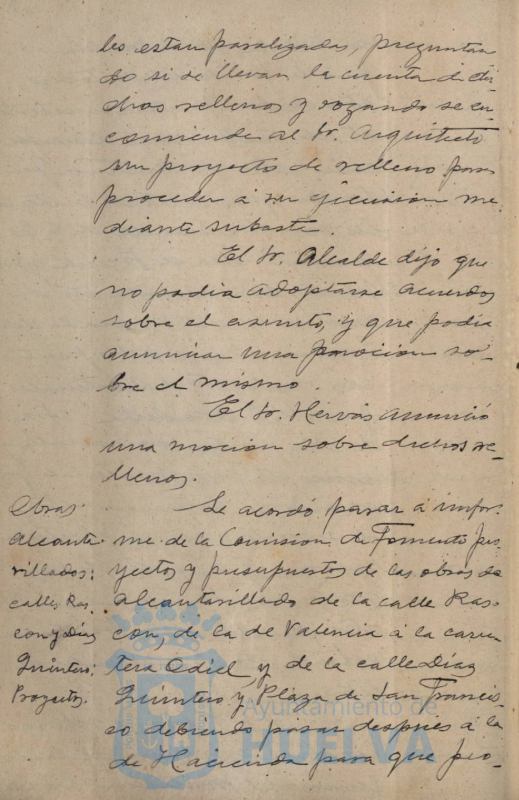 les estan paralizadas, preguntan
do si se llevan la cuenta de di-
chos rellenos y rogando se en
comiende al Sr. Arquitecto
un proyecto de relleno para
proceder a su ejecucion me
diante subasta.
El Sr. Alcalde dijo que
no podia adoptarse acuerdos
sobre el asunto, y que podia
anunciar una mocion so-
bre el mismo.
El Sr. Hervás anunció
una mocion sobre dichos re-
llenos.
Obras
alcanta-
rillados:
calles Ras-
con y Diaz
Quintero:
Proyectos.
Se acordó pasar á infor-
me de la Comision de Fomento pro-
yectos y presupuestos de las obras de
alcantarillado de la calle Ras-
con, de la de Valencia á la carre
tera Odiel y de la calle Diaz
Quintero y Plaza de San Francis-
co debiendo pasar después á la
de Hacienda para que pro-
Ayuntamiento de
HUELVA